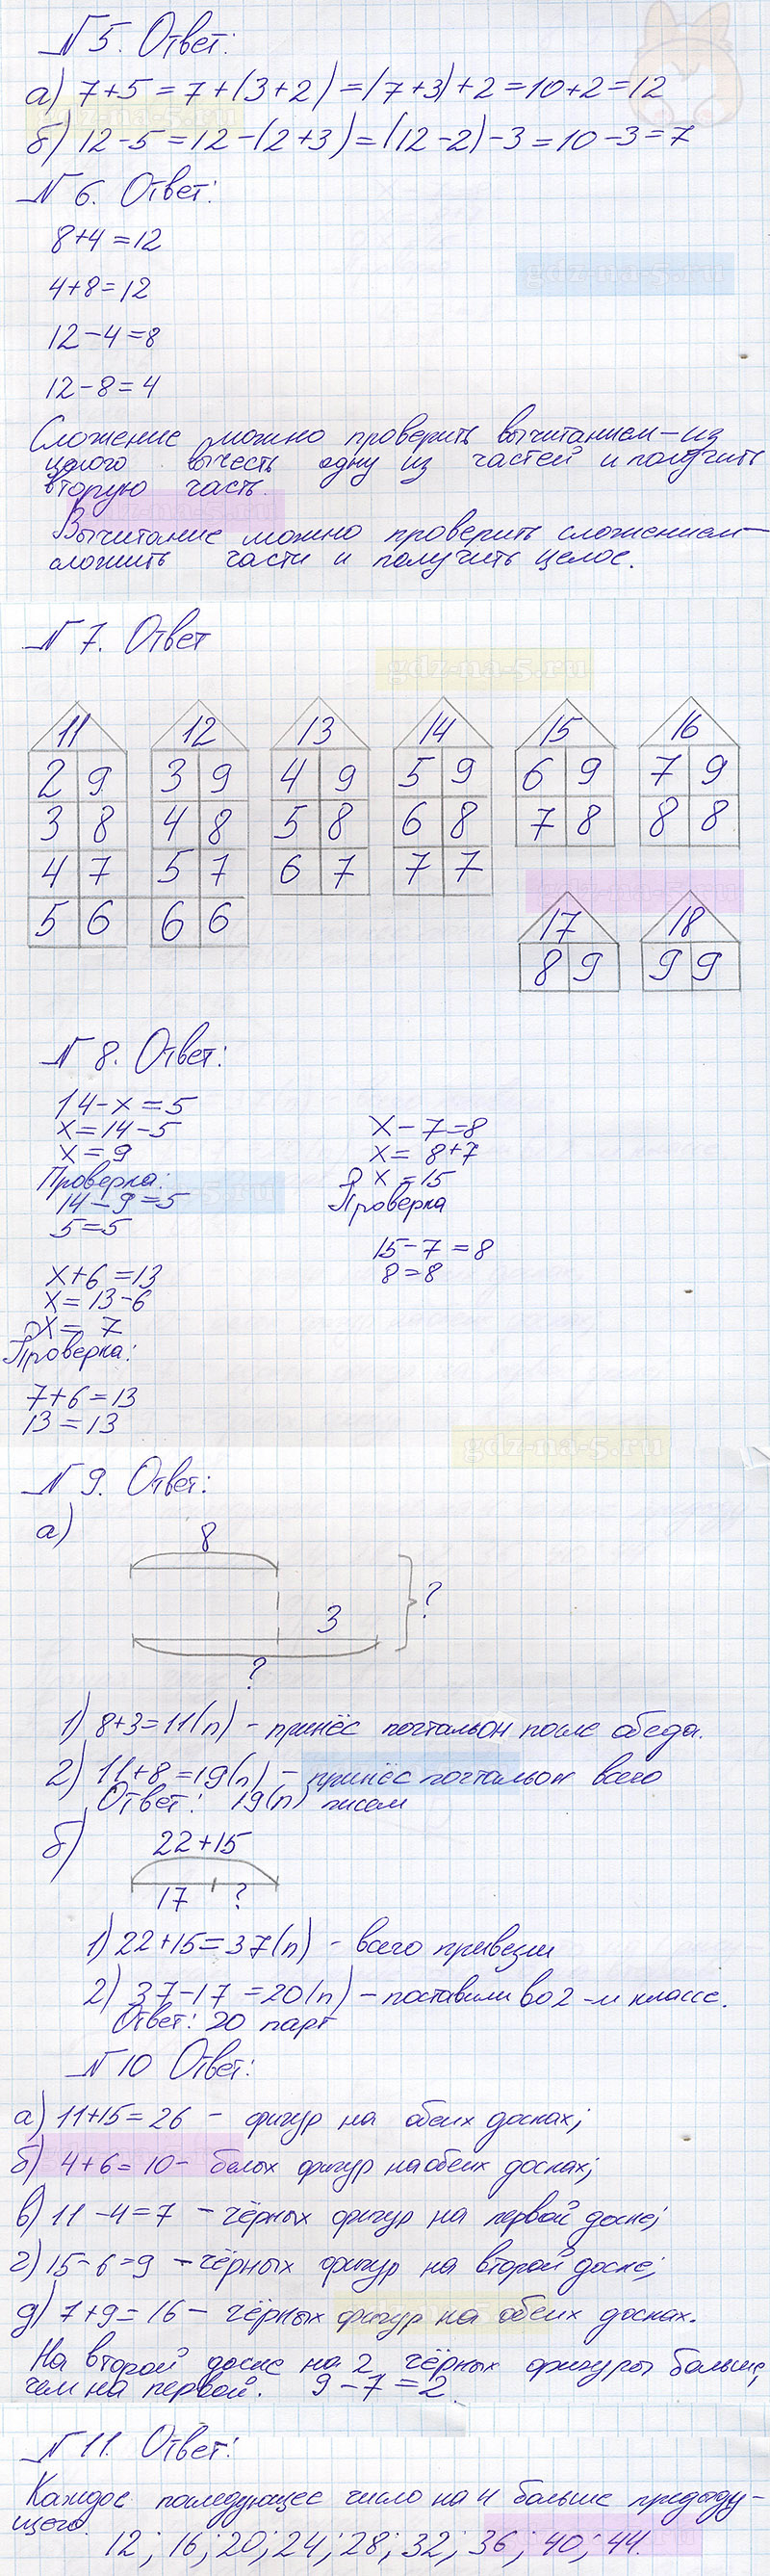 № 5. Ответ:
а) 7+5=7+(3+2)=(7+3)+2=10+2=12
б) 12-5=12-(2+3)=(12-2)-3=10-3=7
№ 6. Ответ:
8+4=12
4+8=12
12-4=8
12-8=4
Сложение можно проверить вычитанием – из
целого вычесть одну из частей и получить
вторую часть.
Вычитание можно проверить сложением –
сложить части и получить целое.
№ 7. Ответ
gdz-na-5.ru
11 12 13 14 15 16
2 9 3 9 4 9 5 9 6 9 7 9
3 8 4 8 5 8 6 8 7 8 8 8
4 7 5 7 6 7 7 7
5 6 6 6
17 18
8 9 9 9
№ 8. Ответ:
14-x=5
x=14-5
x=9
Проверка:
14-9=5
5=5
x-7=8
x=8+7
x=15
Проверка
15-7=8
8=8
x+6=13
x=13-6
x=7
Проверка:
7+6=13
13=13
gdz-na-5.ru
№ 9. Ответ:
а)
8
3
?
?
1) 8+3=11(п) – принёс почтальон после обеда.
2) 11+8=19(п) – принёс почтальон всего
Ответ: 19(п) писем
б)
22+15
17 ?
1) 22+15=37(п) – всего привезли
2) 37-17=20(п) – поставили во 2-м классе.
Ответ: 20 парт
№ 10 Ответ:
а) 11+15=26 – фигур на обеих досках;
б) 4+6=10- белых фигур на обеих досках;
в) 11-4=7 – чёрных фигур на первой доске;
г) 15-6=9 – чёрных фигур на второй доске;
д) 7+9=16 – чёрных фигур на обеих досках.
На второй доске на 2 чёрных фигуры больше,
чем на первой. 9-7=2.
№ 11. Ответ:
Каждое последующее число на 4 больше предыду-
щего.
12; 16; 20; 24; 28; 32; 36; 40; 44.